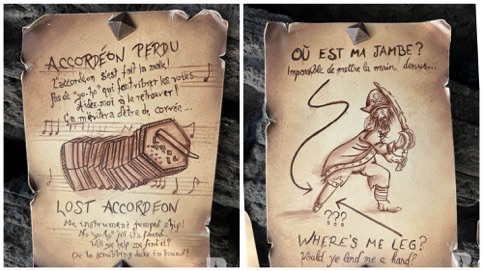 ACCORDÉON PERDU
L'accordéon s'est fait la male!
Pas de "yo-ho" qui font vibrer les voiles.
Aidez-moi à le retrouver!
Ça méritera d'être de corvée...
LOST ACCORDEON
Me instrument jumped ship!
No "yo-ho" till it's found.
Will ye help me find it?
Or be scrubbing decks in
OÙ EST MA JAMBE?
Impossible de mettre la main dessus...
???
WHERE'S ME LEG?
Would ye lend me a hand?